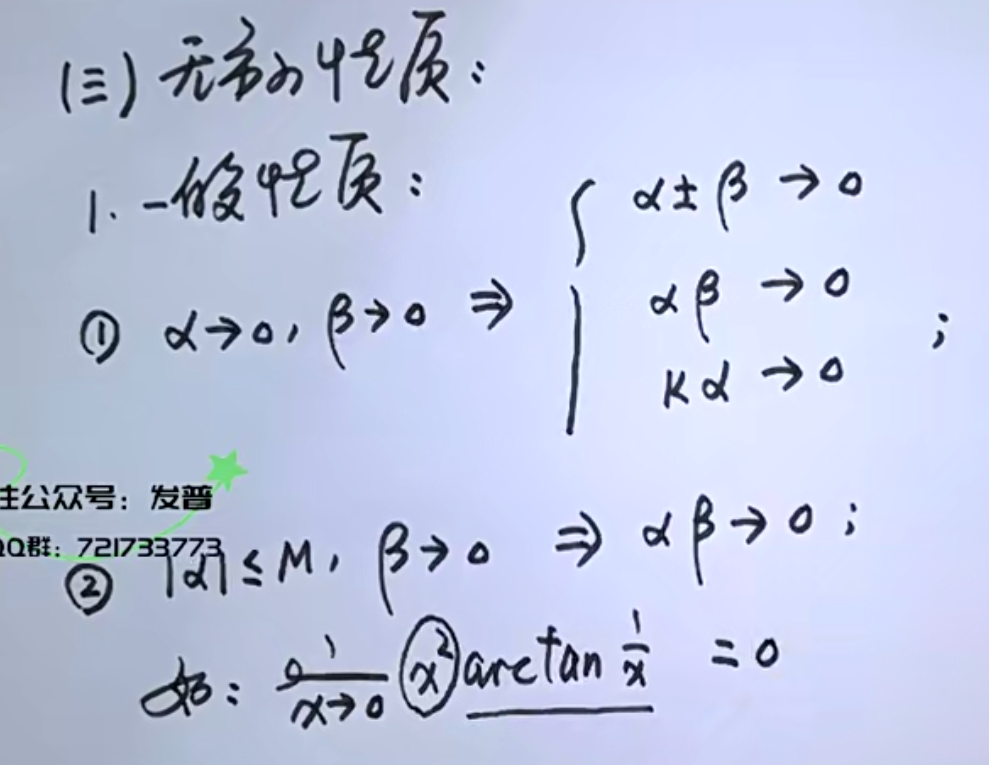 (三) 无穷小性质：
1. 一般性质：
① α→0, β→0 ⇒ { α±β→0
αβ→0
kα→0 ;
注公众号：发普
QQ群：721733773
② |α|≤M, β→0 ⇒ αβ→0 ;
如：lim x→0 x² arctan 1/x = 0